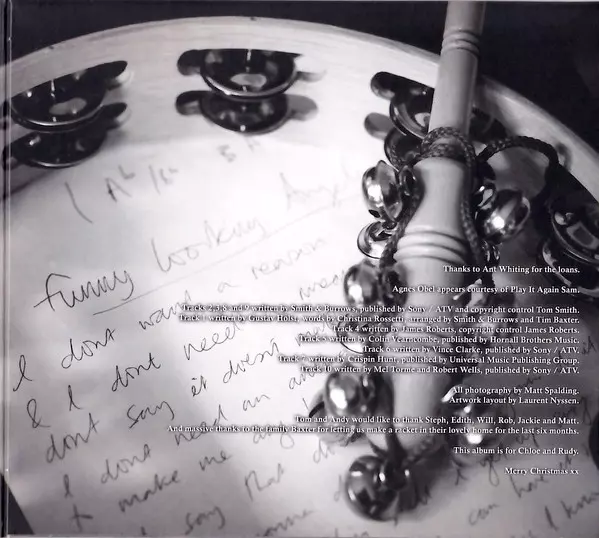 Funny looking Angels
I dont want a reason
& I dont need
dont say it doesn't mean
I dont need an
to make me
say that
Thanks to Ant Whiting for the loans.
Agnes Obel appears courtesy of Play It Again Sam.
Tracks 2,3,8 and 9 written by Smith & Burrows, published by Sony / ATV and copyright control Tom Smith.
Track 1 written by Gustav Holst, words by Christina Rossetti, arranged by Smith & Burrows and Tim Baxter.
Track 4 written by James Roberts, copyright control James Roberts.
Track 5 written by Colin Vearncombe, published by Hornall Brothers Music.
Track 6 written by Vince Clarke, published by Sony / ATV.
Track 7 written by Crispin Hunt, published by Universal Music Publishing Group.
Track 10 written by Mel Torme and Robert Wells, published by Sony / ATV.
All photography by Matt Spalding.
Artwork layout by Laurent Nyssen.
Tom and Andy would like to thank Steph, Edith, Will, Rob, Jackie and Matt.
And massive thanks to the family Baxter for letting us make a racket in their lovely home for the last six months.
This album is for Chloe and Rudy.
Merry Christmas xx